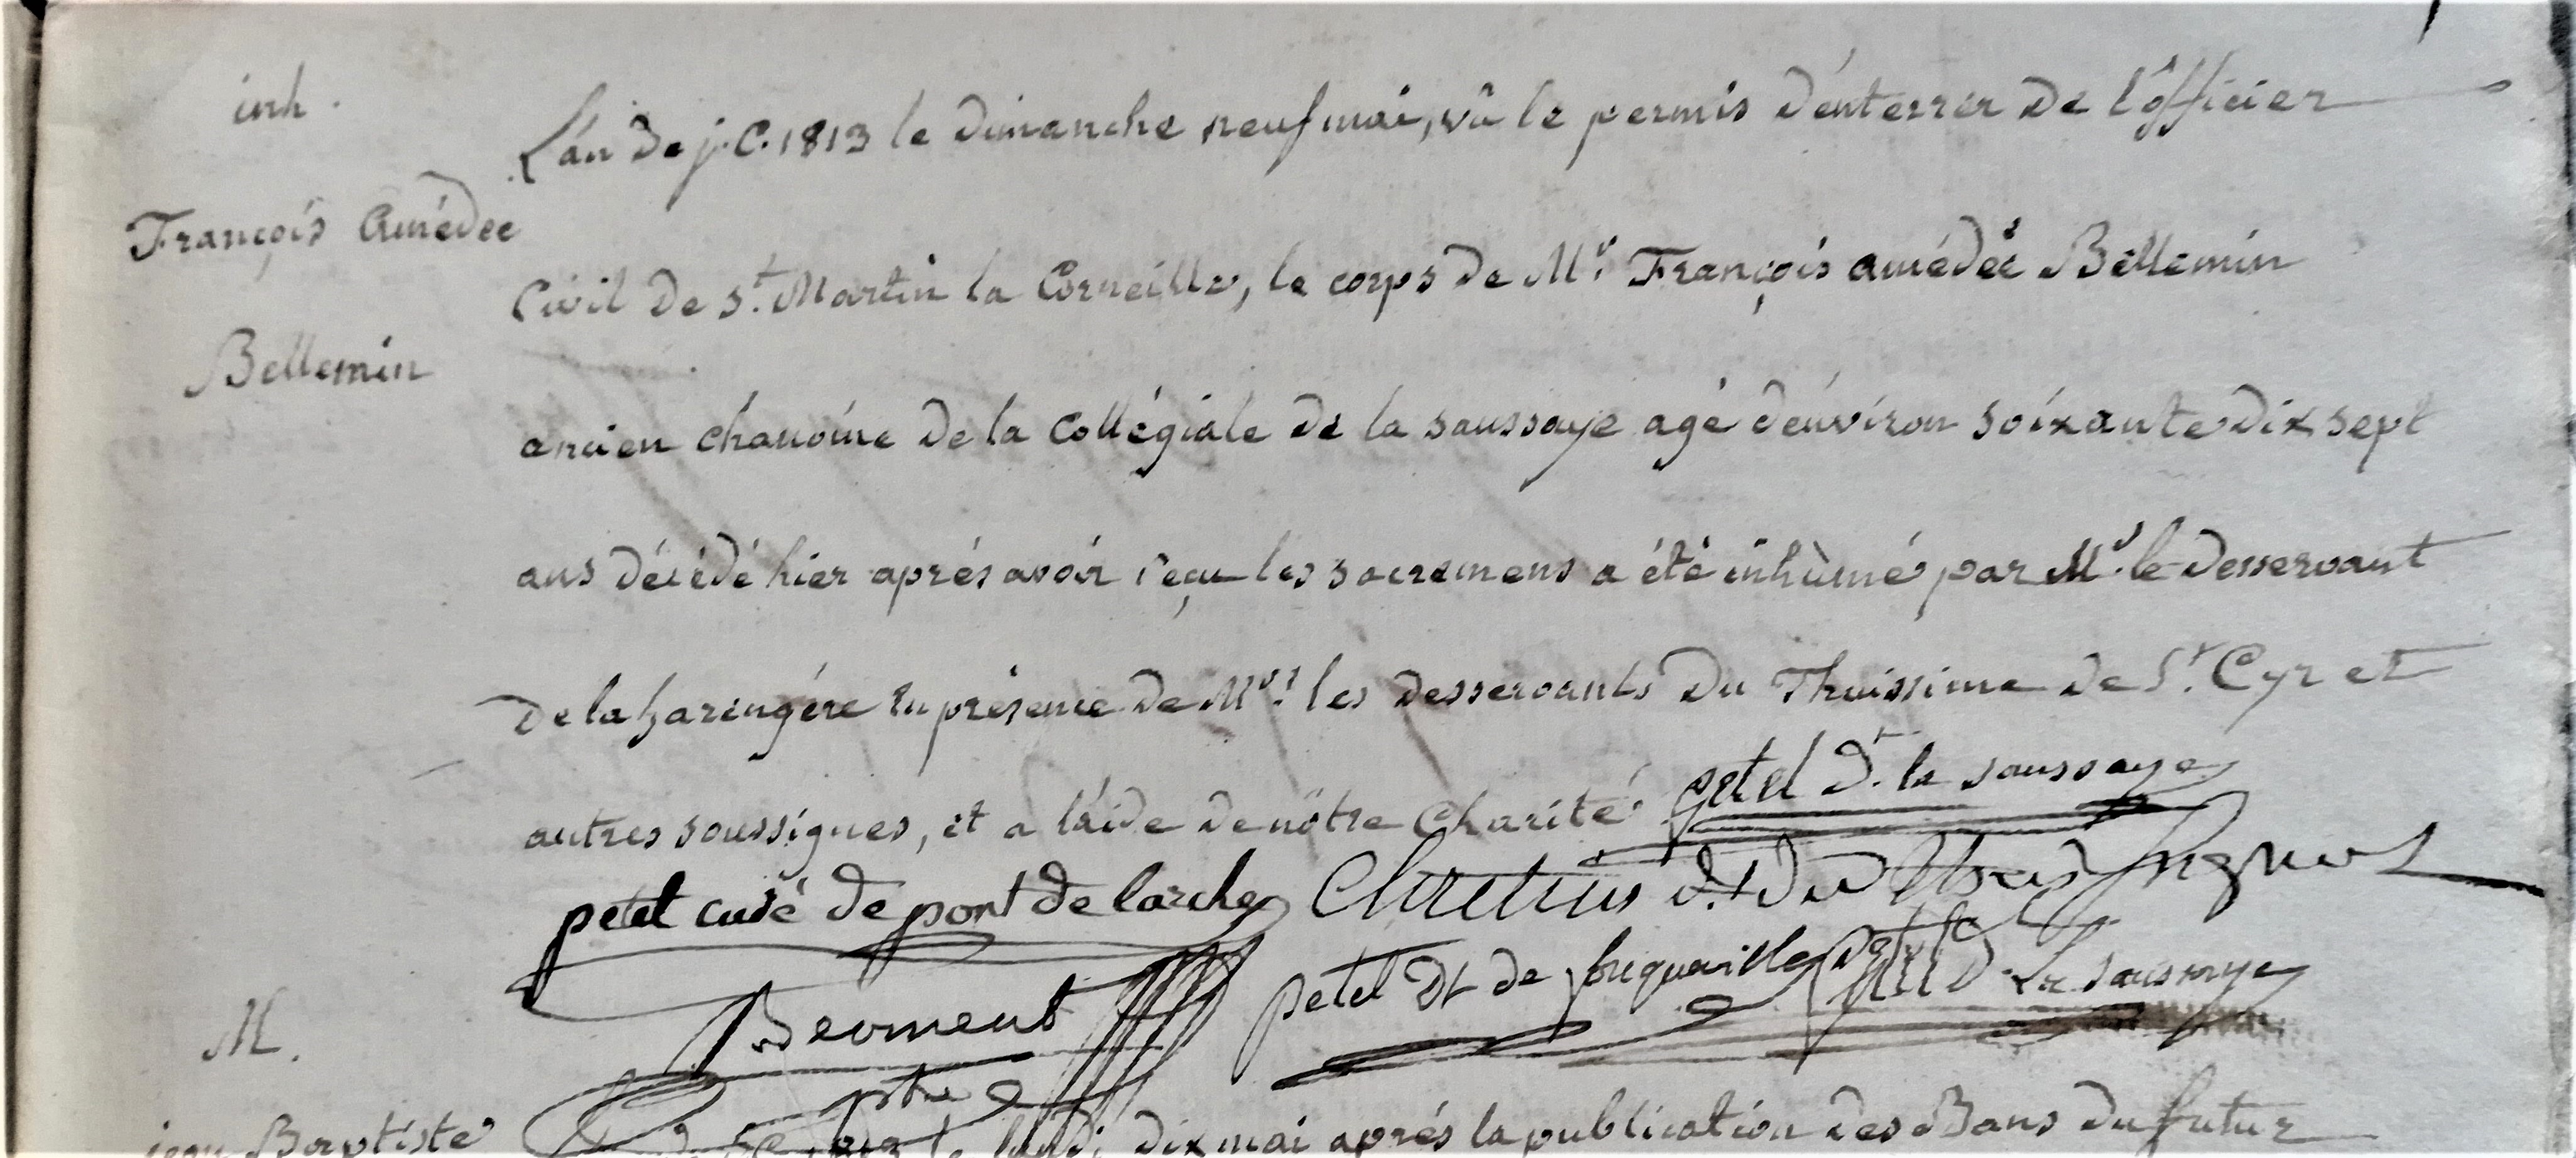 inh.
L'an De j.C. 1813 le dimanche neuf mai, vû le permis d'enterrer de l'officier
François Amédée
Civil de St. Martin la Corneille, le corps de Mr. François amédée Bellemin
Bellemin
ancien chanoine de la Collégiale de la saussaye agé d'environ soixante dix sept
ans décédé hier aprés avoir reçu les sacremens a été inhumé par Mr. le desservant
de la harengére en présence de Mrs. les desservants du Thuissime de St. Cyr et
autres soussignes, et a l'aide de nôtre Charité petel dt. la saussaye
petel curé de pont de larche Chretien d.t du
petel dt de fouqueville petel d. La saussaye
M. Beoment
ptre
jean Baptiste
lundi dix mai aprés la publication des Bans du futur